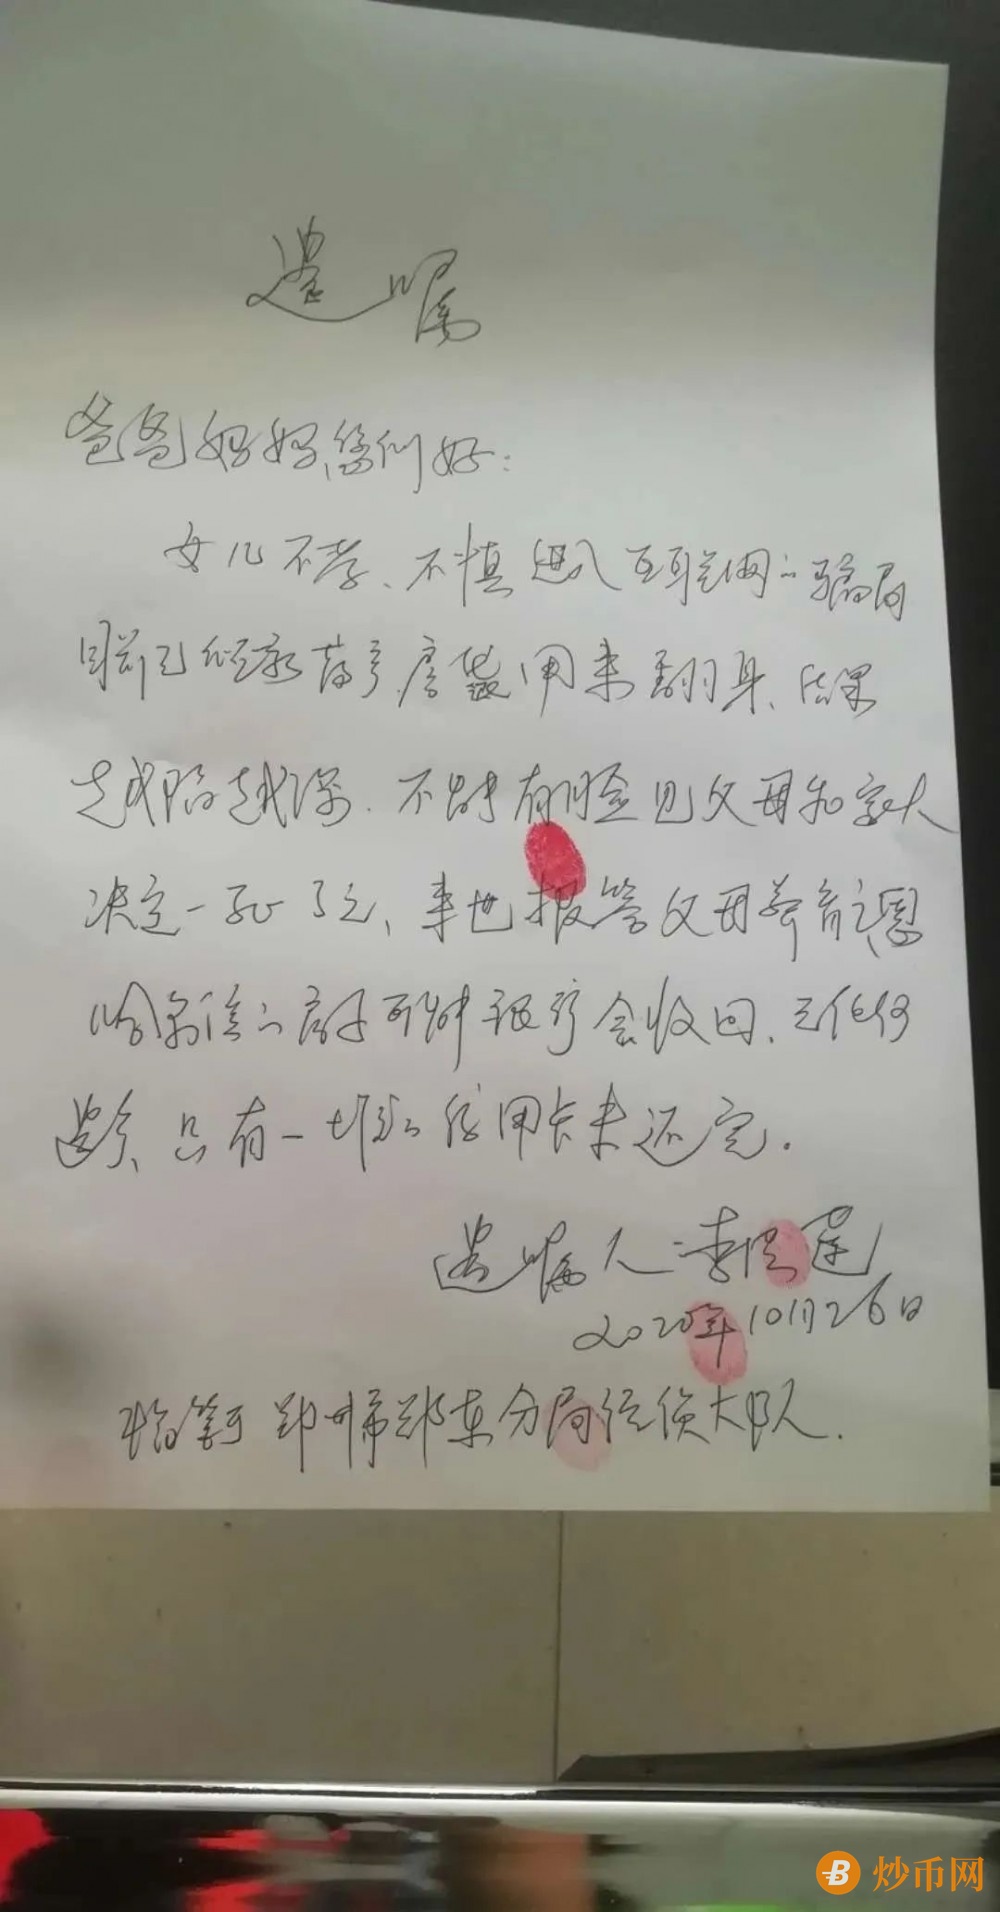 遗嘱
爸爸妈妈您们好：
女儿不孝、不慎进入互联网的骗局
目前已倾家荡产、房贷用来翻身、结果
越陷越深、不时有脸见父母和家人
决定一死了之、来世报答父母养育之恩
哈尔滨的房子到时银行会收回、无任何
遗产、只有一堆的信用卡未还完.
遗嘱人：李
2020年10月26日
郑州市郑东分局经侦大队.
炒币网